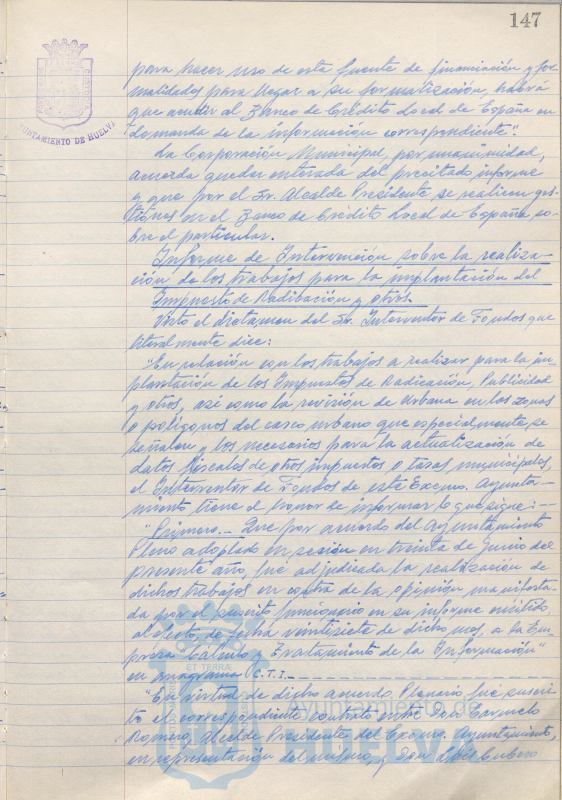 147
AYUNTAMIENTO DE HUELVA
para hacer uso de esta fuente de financiación y for-
malidades para llegar a su formatización, habrá
que acudir al Banco de Crédito Local de España en
demanda de la información correspondiente".
La Corporación Municipal, por unanimidad,
acuerda quedar enterada del precitado informe
y que por el Sr. Alcalde Presidente se realicen ges-
tiones en el Banco de Crédito Local de España, so-
bre el particular.
Informe de Intervención sobre la realiza-
ción de los trabajos para la implantación del
Impuesto de Radicación y otros.
Visto el dictamen del Sr. Interventor de Fondos que
literalmente dice:
"En relación con los trabajos a realizar para la im-
plantación de los Impuestos de Radicación, Publicidad
y otros, así como la revisión de Urbana en las zonas
o polígonos del casco urbano que especialmente se
señalen y los necesarios para la actualización de
datos fiscales de otros impuestos o tasas municipales,
el Interventor de Fondos de este Excmo. Ayunta-
miento tiene el honor de informar lo que sigue: -
"Primero.- Que por acuerdo del Ayuntamiento
Pleno adoptado en sesión en treinta de Junio del
presente año, fué adjudicada la realización de
dichos trabajos en contra de la opinión manifesta-
da por el suscrito funcionario en su informe emitido
al efecto, de fecha veintisiete de dicho mes, a la Em-
presa Cálculo y Tratamiento de la Información"
en anagrama C.T.I.
"En virtud de dicho acuerdo Plenario, fué suscri-
to el correspondiente contrato entre Don Carmelo
Romero, Alcalde Presidente del Excmo. Ayuntamiento,
en representación del mismo, y Don Luis Cubero
ET TERRÆ
Ayuntamiento de
HUELVA